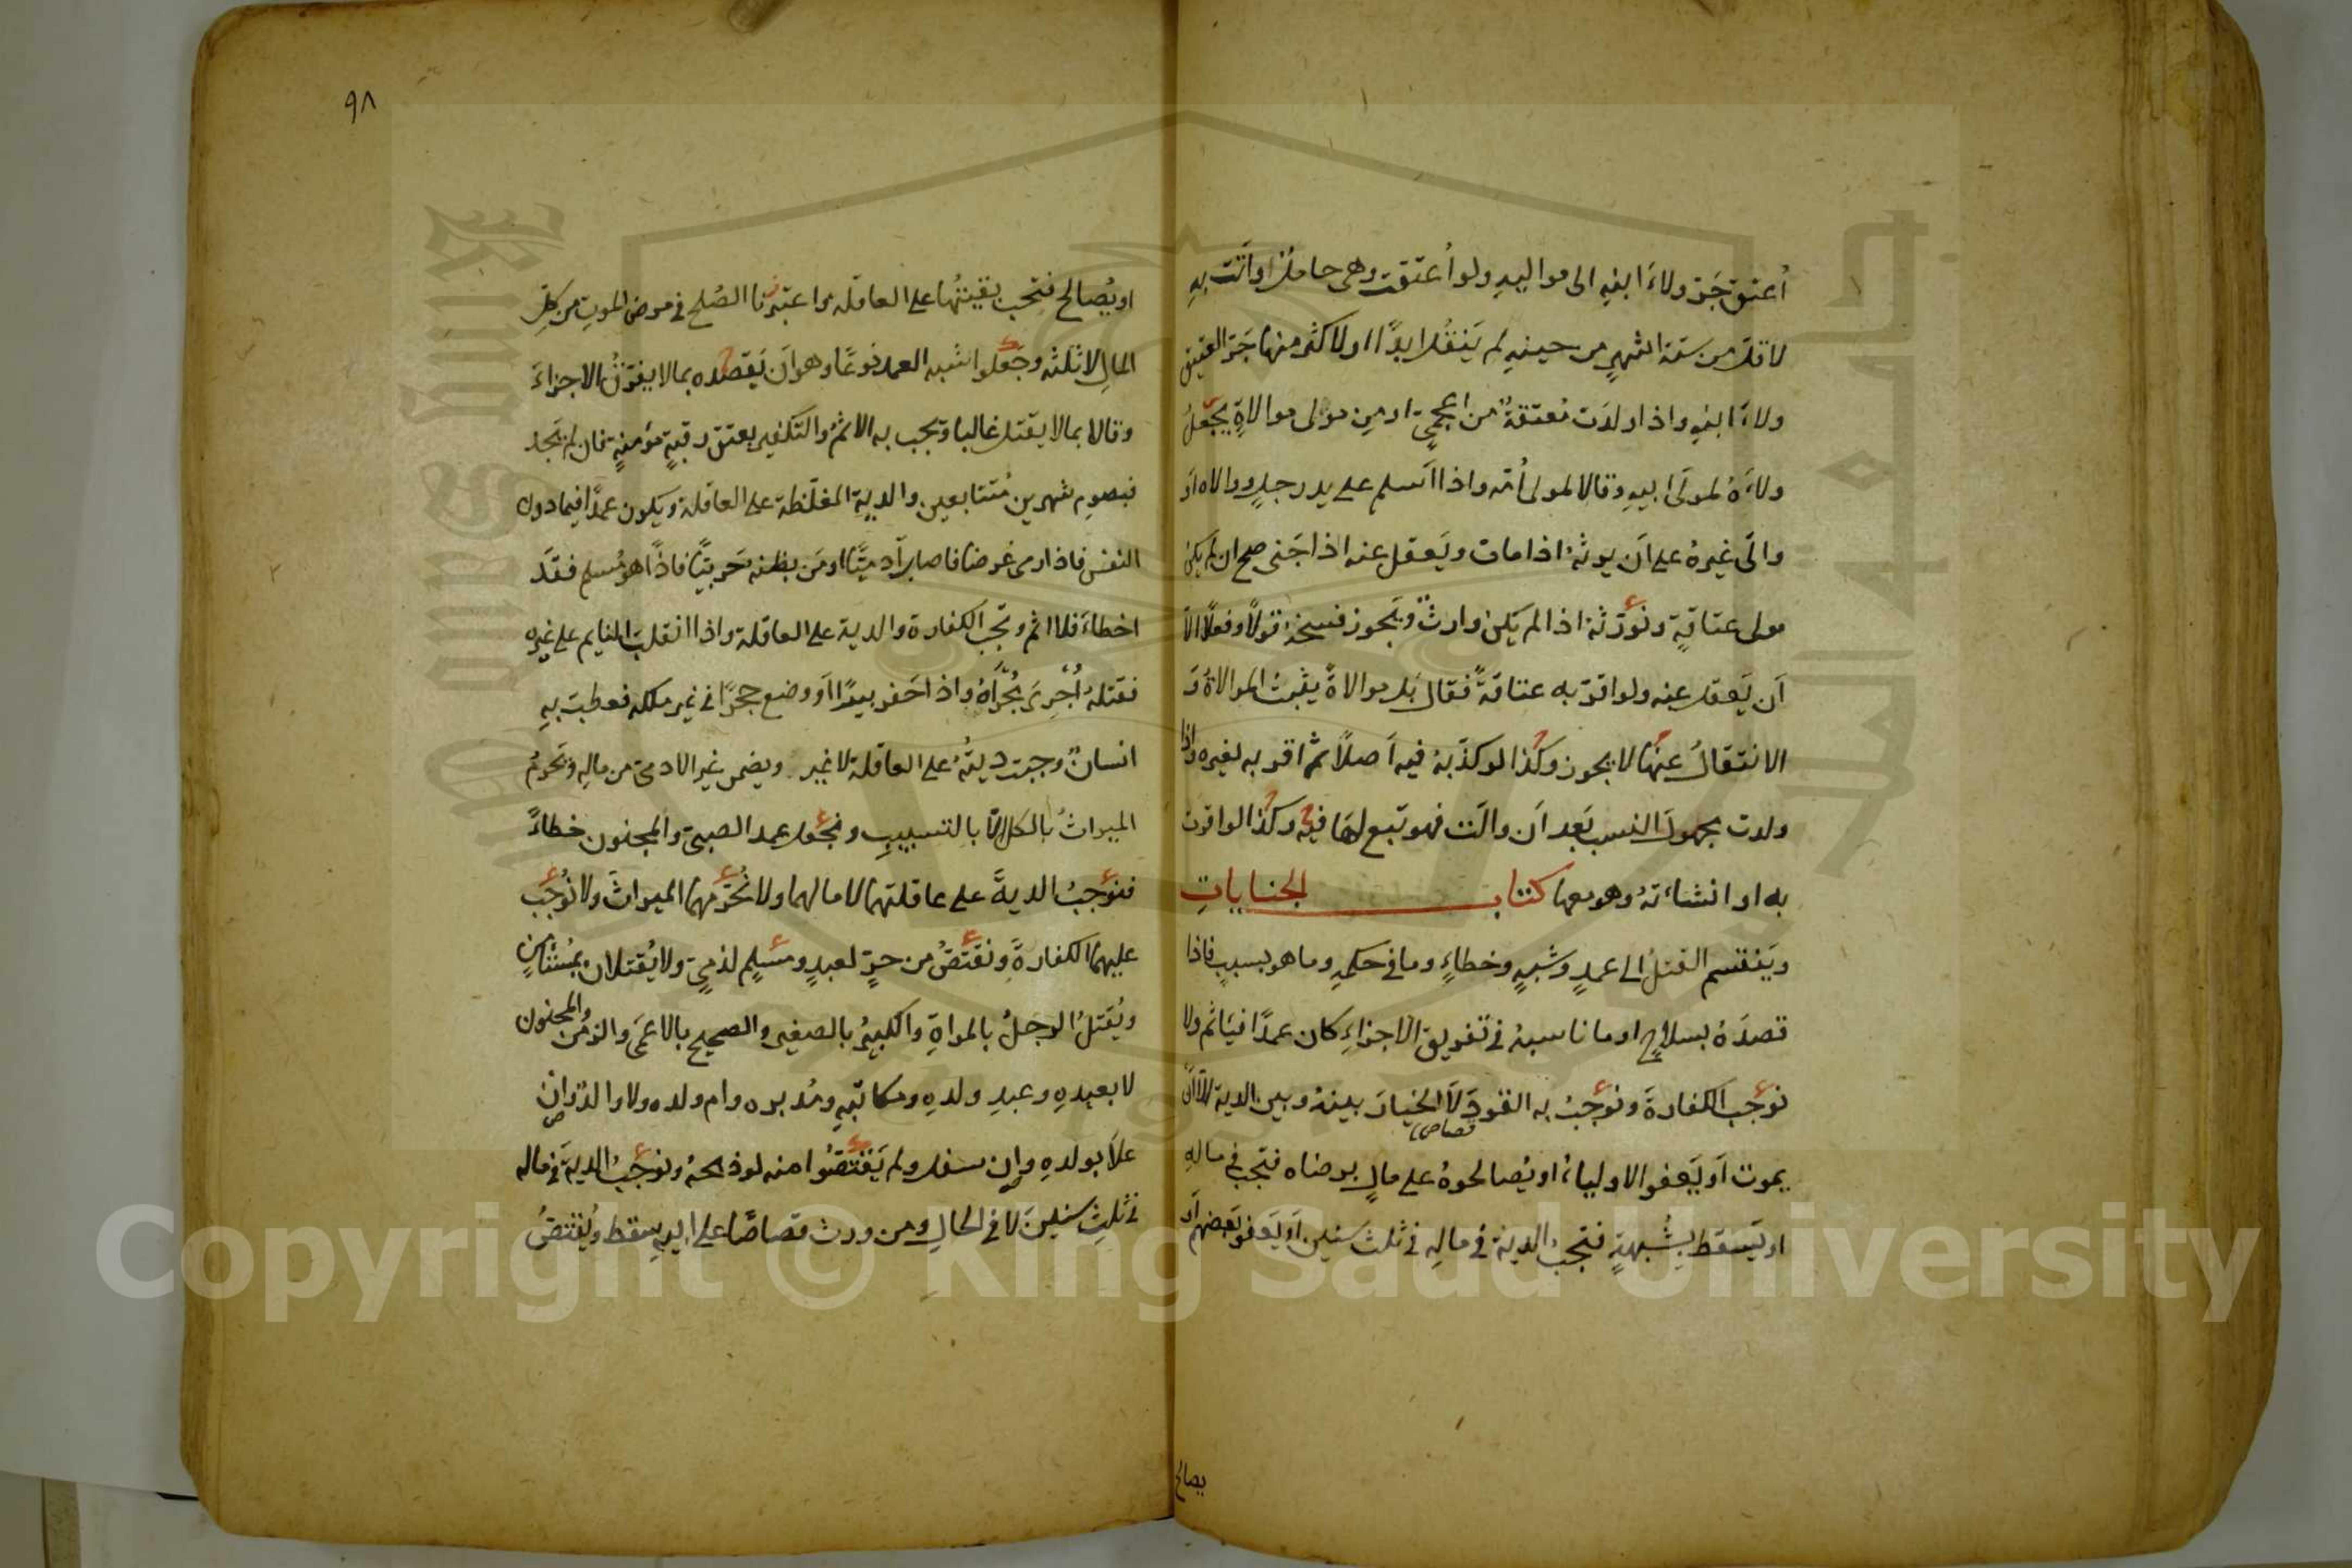 أعتق جَرّ ولاءَ ابنهِ الى مواليهِ ولو أُعتقت وهى حامل او أتت بهِ
لاقل من ستة اشهرٍ من حينهِ لم يَنتقل ابدًا او لاكثر منها جَرّ العتيق
ولاءَ ابنهِ واذا ولدَت مُعتقةٌ من اعجمىٍّ او مِن مولى موالاةٍ يجعَلُ
ولاءَهُ لمولَى ابيهِ وقالا لمولى أُمّه واذا اَسلم على يد رجلٍ ووالاه اَو
والَى غيرهُ على اَن يرثهُ اذا مات ويَعقل عنه اذا جَنى صح ان لم يكن
مولى عتاقةٍ ونوَرّثه اذا لم يكن وارثٌ ويَجوز فسخهُ قولًا وفعلًا الّا
اَن يَعقل عنه ولو اقرّ به عتاقةً فقال بَل موالاةً يثبتُ الموالاةُ وَ
الانتقالُ عنها لا يجوز وكذا لو كذّبهُ فيه اَصلًا ثم اقر به لغيره واذا
ولدت مجهولَ النسب بَعد اَن والَت فهو تبع لهَا فيه وكذا لو اقرت
به او انشاءَتهُ وهو معها كتاب الجناياتِ
ويَنقسم القتلُ الى عمدٍ وشبههِ وخطاءٍ وما فى حكمهِ وما هو بسببٍ فاذا
قصدَهُ بسلاحٍ او ما ناسبهُ فى تفريق الاجزاءِ كان عمدًا فيَاثم ولا
نوجب الكفارةَ ونوجبُ به القودَ لَا الخيارَ بينهُ وبين الدية الّا ان
قصاص
يموت اَو يَعفو الاولياءُ او يُصالحوهُ على مالٍ برضاه فتجب فى مالهِ
او يَسقط بِشُبهةٍ فتجبُ الدية فى مالهِ فى ثلث سنين اَو يَعفو بَعضهم اَو
يصالح
٩٨
او يُصالح فتجب بقيتُها على العاقله واعتبرنا الصُلح فى مرض الموتِ من كلِّ
المالِ لا ثلثه وجَعلوا شبه العمد نوعًا وهو اَن يَقصده بما لا يفرّقُ الاجزاءَ
وقالا بما لا يقتل غالبا ويجب به الاثمُ والتكفير بعتق رقبةٍ مؤمنةٍ فان لم يَجد
فبصوم شهرين مُتتابعين والديةِ المغلّظة على العاقلة ويكون عمدًا فيما دون
النفس فاذا رمى غرضا فاصابَ آدميًّا او مَن يظنه حَربيًّا فاذًا هو مُسلم فقدَ
اخطاءَ فلا اثم وتجب الكفارة والدية على العاقلة واذا انقلبَ النايم على غيره
فقتلهُ أُجْرِىَ مُجْرَاهُ واذا حَفر بيرًا اَو وضع حجرًا فى غير ملكه فعطبت بهِ
انسانٌ وجبت ديتُهُ على العاقلة لا غير ويضمن غير الادمىّ من مالهِ ونحرمُ
الميراثُ بالكل الّا بالتسبيبِ ونجعل عمد الصبىّ والمجنون خطاءً
فنوجبُ الديةَ على عاقلتهما لا مالهما ولا نُحرّمهما الميراثَ ولا نُوجب
عليهما الكفارةَ ونقتصُّ من حرٍّ لعبدٍ ومسلمٍ لذمىٍّ ولا يُقتلان بمُستامَنٍ
ويُقتلُ الرجلُ بالمراةِ والكبيرُ بالصغير والصحيح بالاعمَى والزمن والمجنون
لا بعبدهِ وعبدِ ولدهِ ومكاتبهِ ومُدبره وام ولده ولا والدٌ وان
علَا بولدهِ وان سفل ولم يَقتصّوا منه لو ذبحهُ ونوجبُ الديةَ فى ماله
فى ثلثِ سنينَ لا فى الحالِ ومن ورث قصاصًا على ابيهِ سقط ويُقتصُّ
Copyright © King Saud University